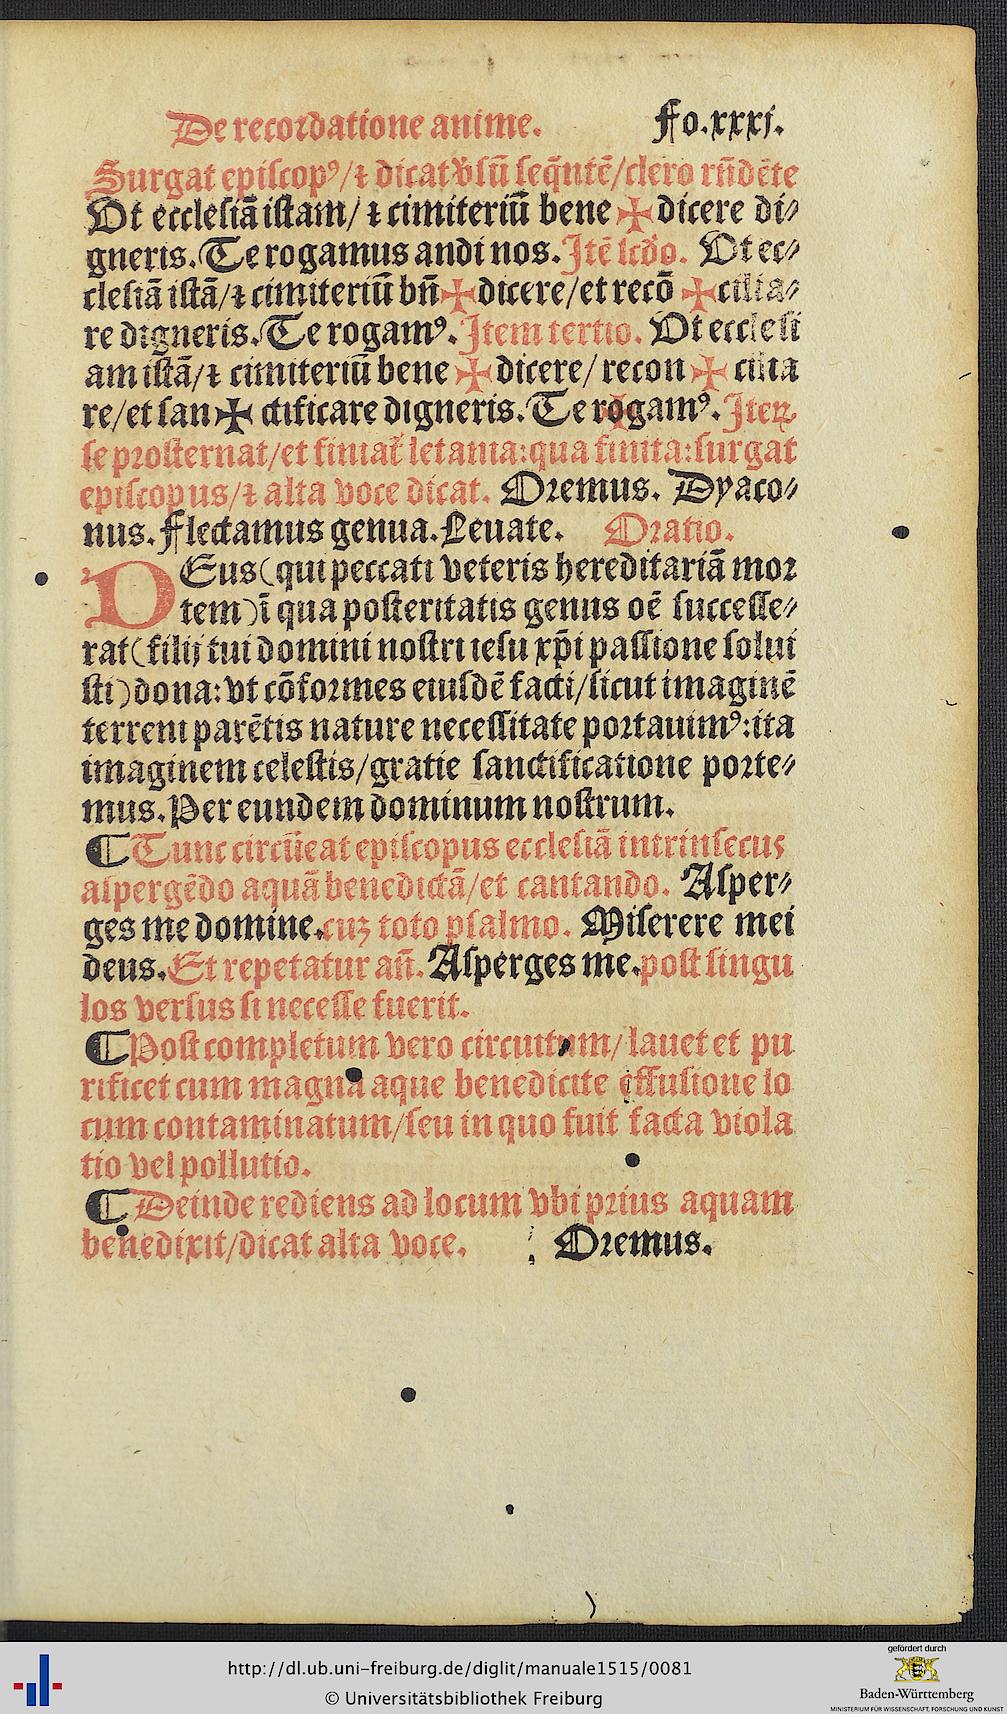 De recordatione anime. Fo.xxxj.
Surgat episcopꝰ/⁊ dicat v̉sū seq̄ntē/clero rn̄dēte
Vt ecclesiā istam/⁊ cimiteriū bene ✠ dicere di⸗
gneris. Te rogamus audi nos. Itē scdo. Vt ec⸗
clesiā istā/⁊ cimiteriū bn̄ ✠ dicere/et recō ✠ cilia⸗
re digneris. Te rogamꝰ. Item tertio. Vt ecclesi
am istā/⁊ cimiteriū bene ✠ dicere/ recon ✠ cilia
re/et san ✠ ctificare digneris. Te rogamꝰ. Iteꝝ
se prosternat/et finiat̉ letania: qua finita: surgat
episcopus/⁊ alta voce dicat. Oremus. Dyaco⸗
nus. Flectamus genua. Leuate. Oratio.
DEus (qui peccati veteris hereditariā mor
tem) ī qua posteritatis genus oē successe⸗
rat (filij tui domini nostri iesu xp̄i passione solui
sti) dona: vt cōformes eiusdē facti/sicut imaginē
terreni parētis nature necessitate portauimꝰ: ita
imaginem celestis/gratie sanctificatione porte⸗
mus. Per eundem dominum nostrum.
¶ Tunc circūeat episcopus ecclesiā intrinsecus
aspergēdo aquā benedictā/et cantando. Asper⸗
ges me domine. cuꝫ toto psalmo. Miserere mei
deus. Et repetatur an̄. Asperges me. post singu
los versus si necesse fuerit.
¶ Post completum vero circuitum/lauet et pu
rificet cum magna aque benedicite effusione lo
cum contaminatum/seu in quo fuit facta viola
tio vel pollutio.
¶ Deinde rediens ad locum vbi prius aquam
benedixit/dicat alta voce. Oremus.
http://dl.ub.uni-freiburg.de/diglit/manuale1515/0081
© Universitätsbibliothek Freiburg
gefördert durch
Baden-Württemberg
MINISTERIUM FÜR WISSENSCHAFT, FORSCHUNG UND KUNST